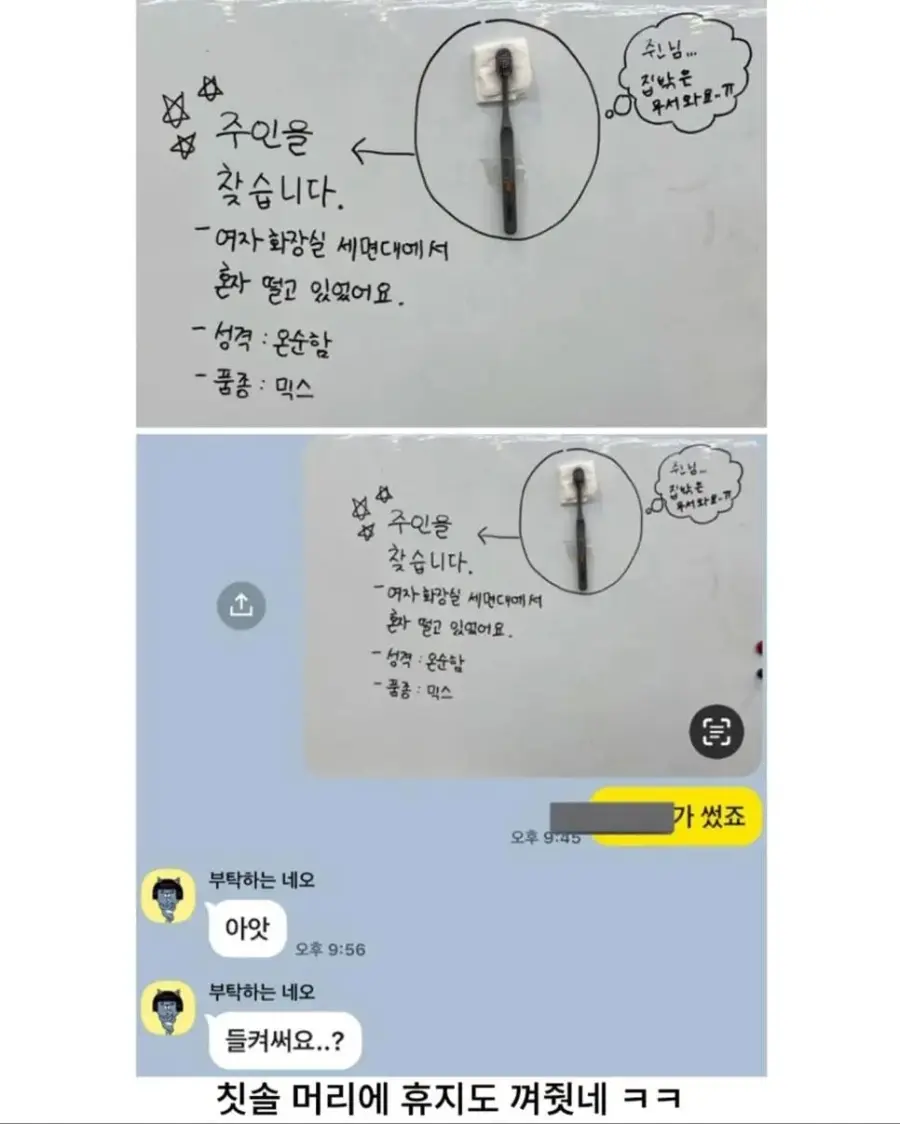 주인님...
집밖은
무서워요-ㅠ
주인을
찾습니다.
- 여자 화장실 세면대에서
혼자 떨고 있었어요.
- 성격 : 온순함
- 품종 : 믹스
주인님...
집밖은
무서워요-ㅠ
주인을
찾습니다.
- 여자 화장실 세면대에서
혼자 떨고 있었어요.
- 성격 : 온순함
- 품종 : 믹스
가 썼죠
오후 9:45
부탁하는 네오
아앗
오후 9:56
부탁하는 네오
들켜써요..?
칫솔 머리에 휴지도 껴줫네 ㅋㅋ